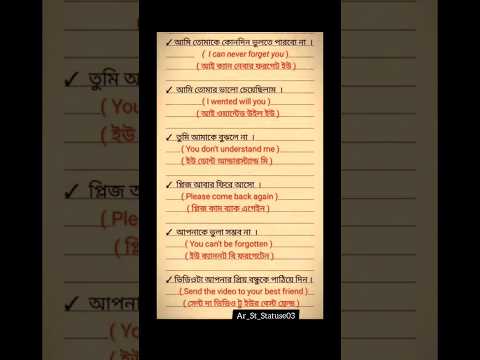 ✓ আমি তোমাকে কোনদিন ভুলতে পারবো না ।
( I can never forget you )
( আই ক্যান নেবার ফরগেট ইউ )
✓ আমি তোমার ভালো চেয়েছিলাম ।
( I wented will you )
( আই ওয়ান্টেড উইল ইউ )
✓ তুমি আমাকে বুঝলে না ।
( You don't understand me )
( ইউ ডোন্ট আন্ডারস্ট্যান্ড মি )
✓ প্লিজ আবার ফিরে আসো ।
( Please come back again )
( প্লিজ কাম ব্যাক এগেইন )
✓ আপনাকে ভুলা সম্ভব না ।
( You can't be forgotten )
( ইউ ক্যানন্ট বি ফরগেটেন )
✓ ভিডিওটা আপনার প্রিয় বন্ধুকে পাঠিয়ে দিন ।
( Send the video to your best friend )
( সেন্ট দা ভিডিও টু ইউর বেস্ট ফ্রেন্ড )
Ar_St_Statuse03